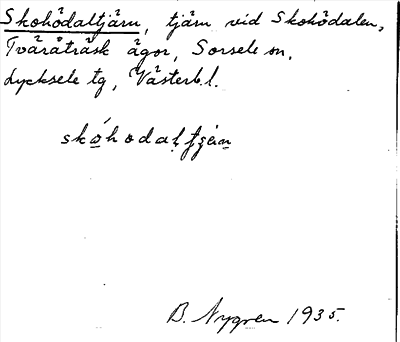 Skohödaltjärn, tjärn vid Skohödalen,
Tväråträsk ägor, Sorsele sn,
Lycksele tg, Västerb.l.
B. Nygren 1935.